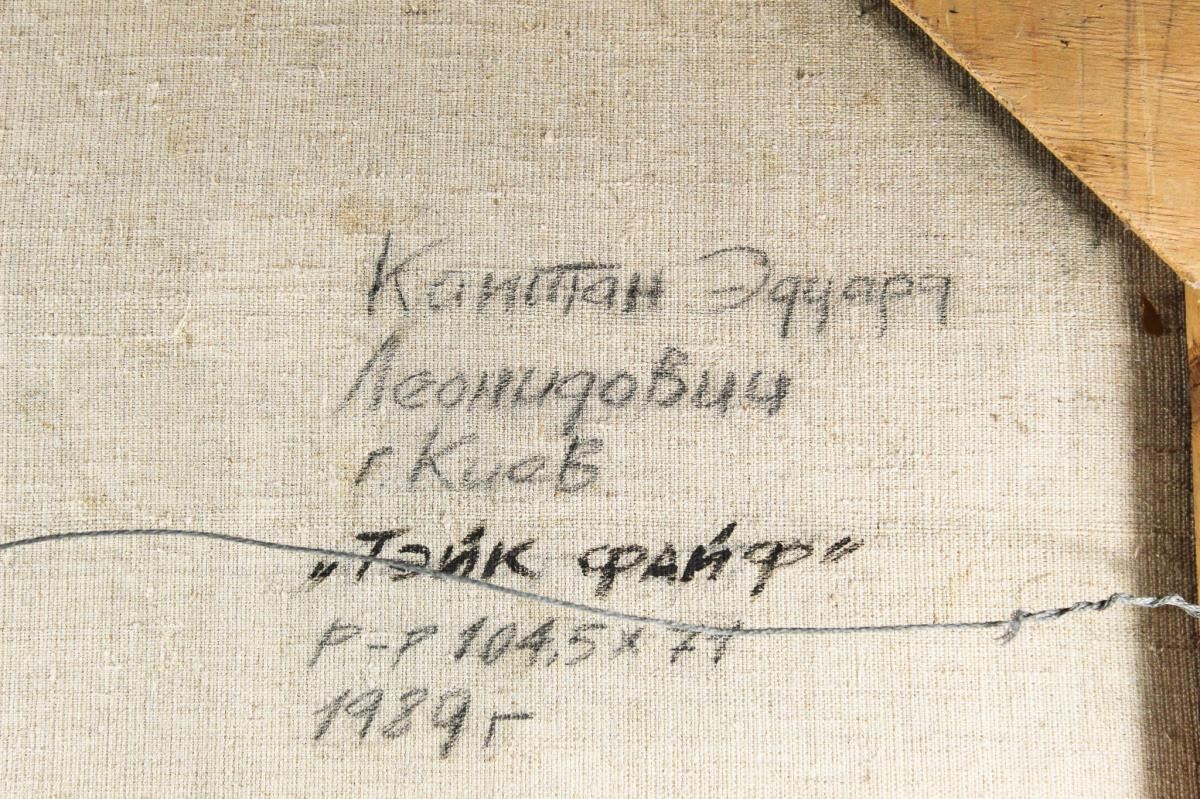 Капштан Эдуард
Леонидович
г. Киев
„Тэйк файф”
р-р 104,5 x 71
1989 г